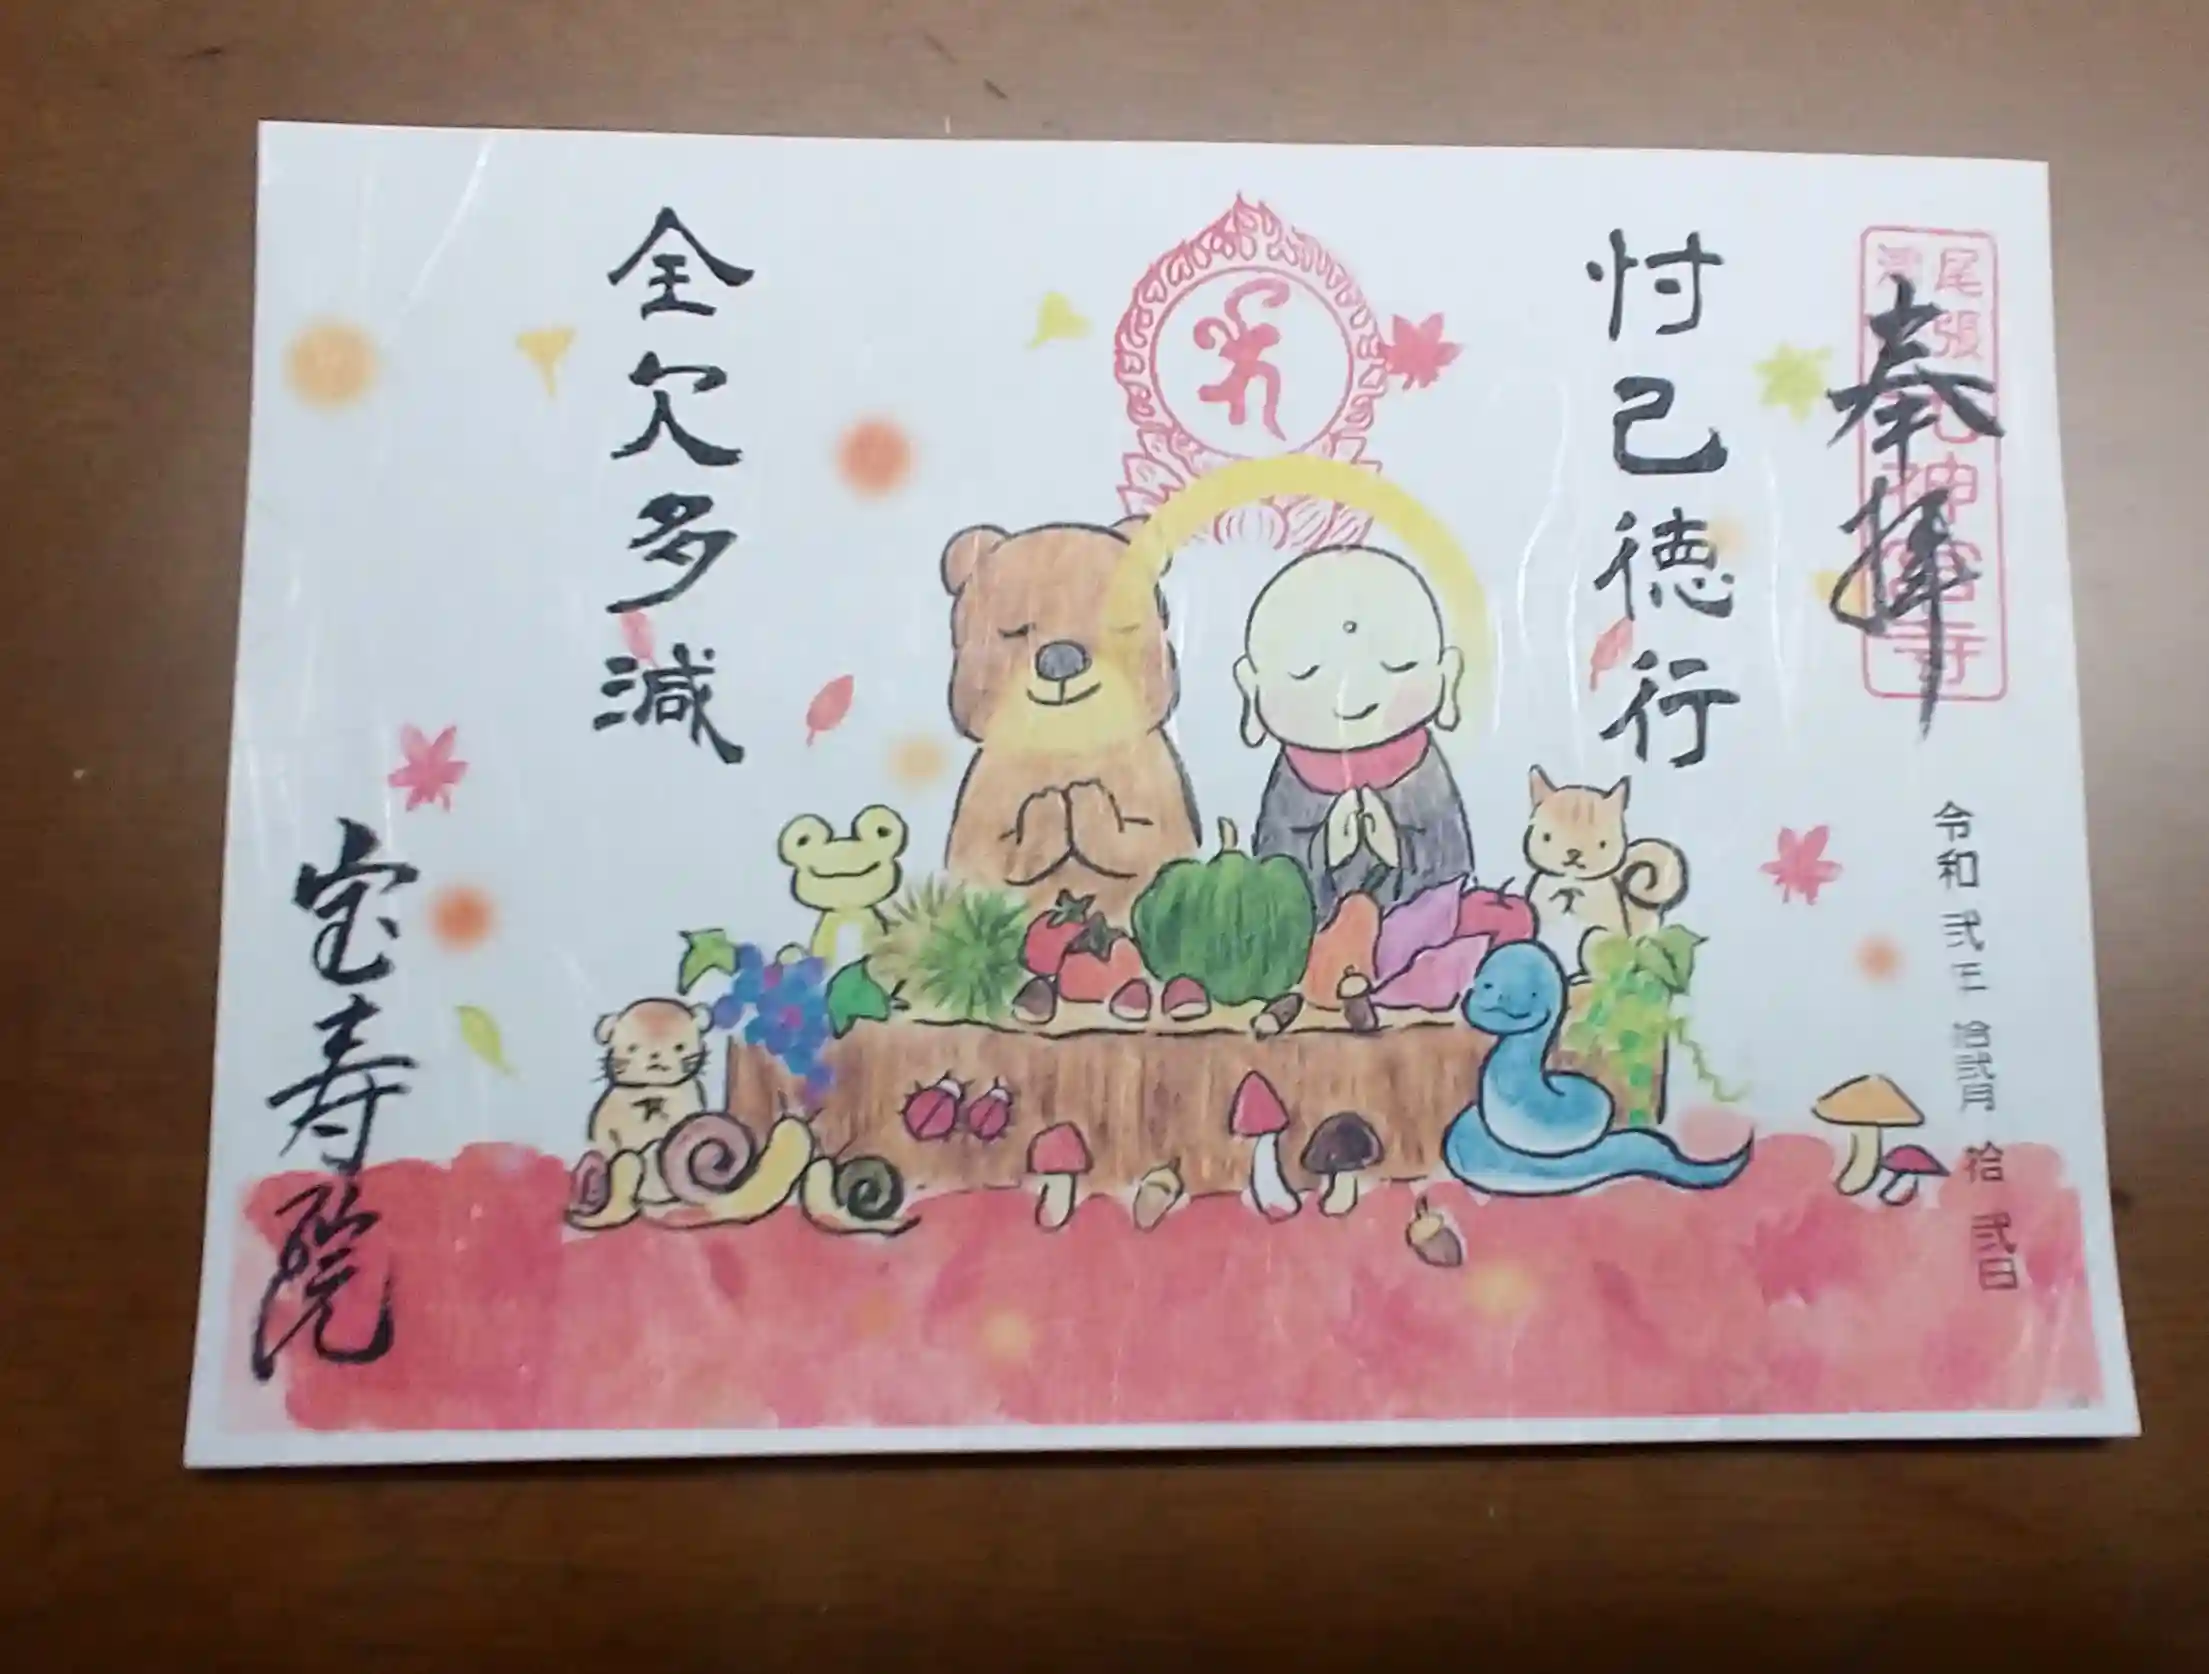 奉拝
尾張
神宮寺
令和弐年 拾弐月 拾弐日
忖己徳行
全欠多減
宝寿院